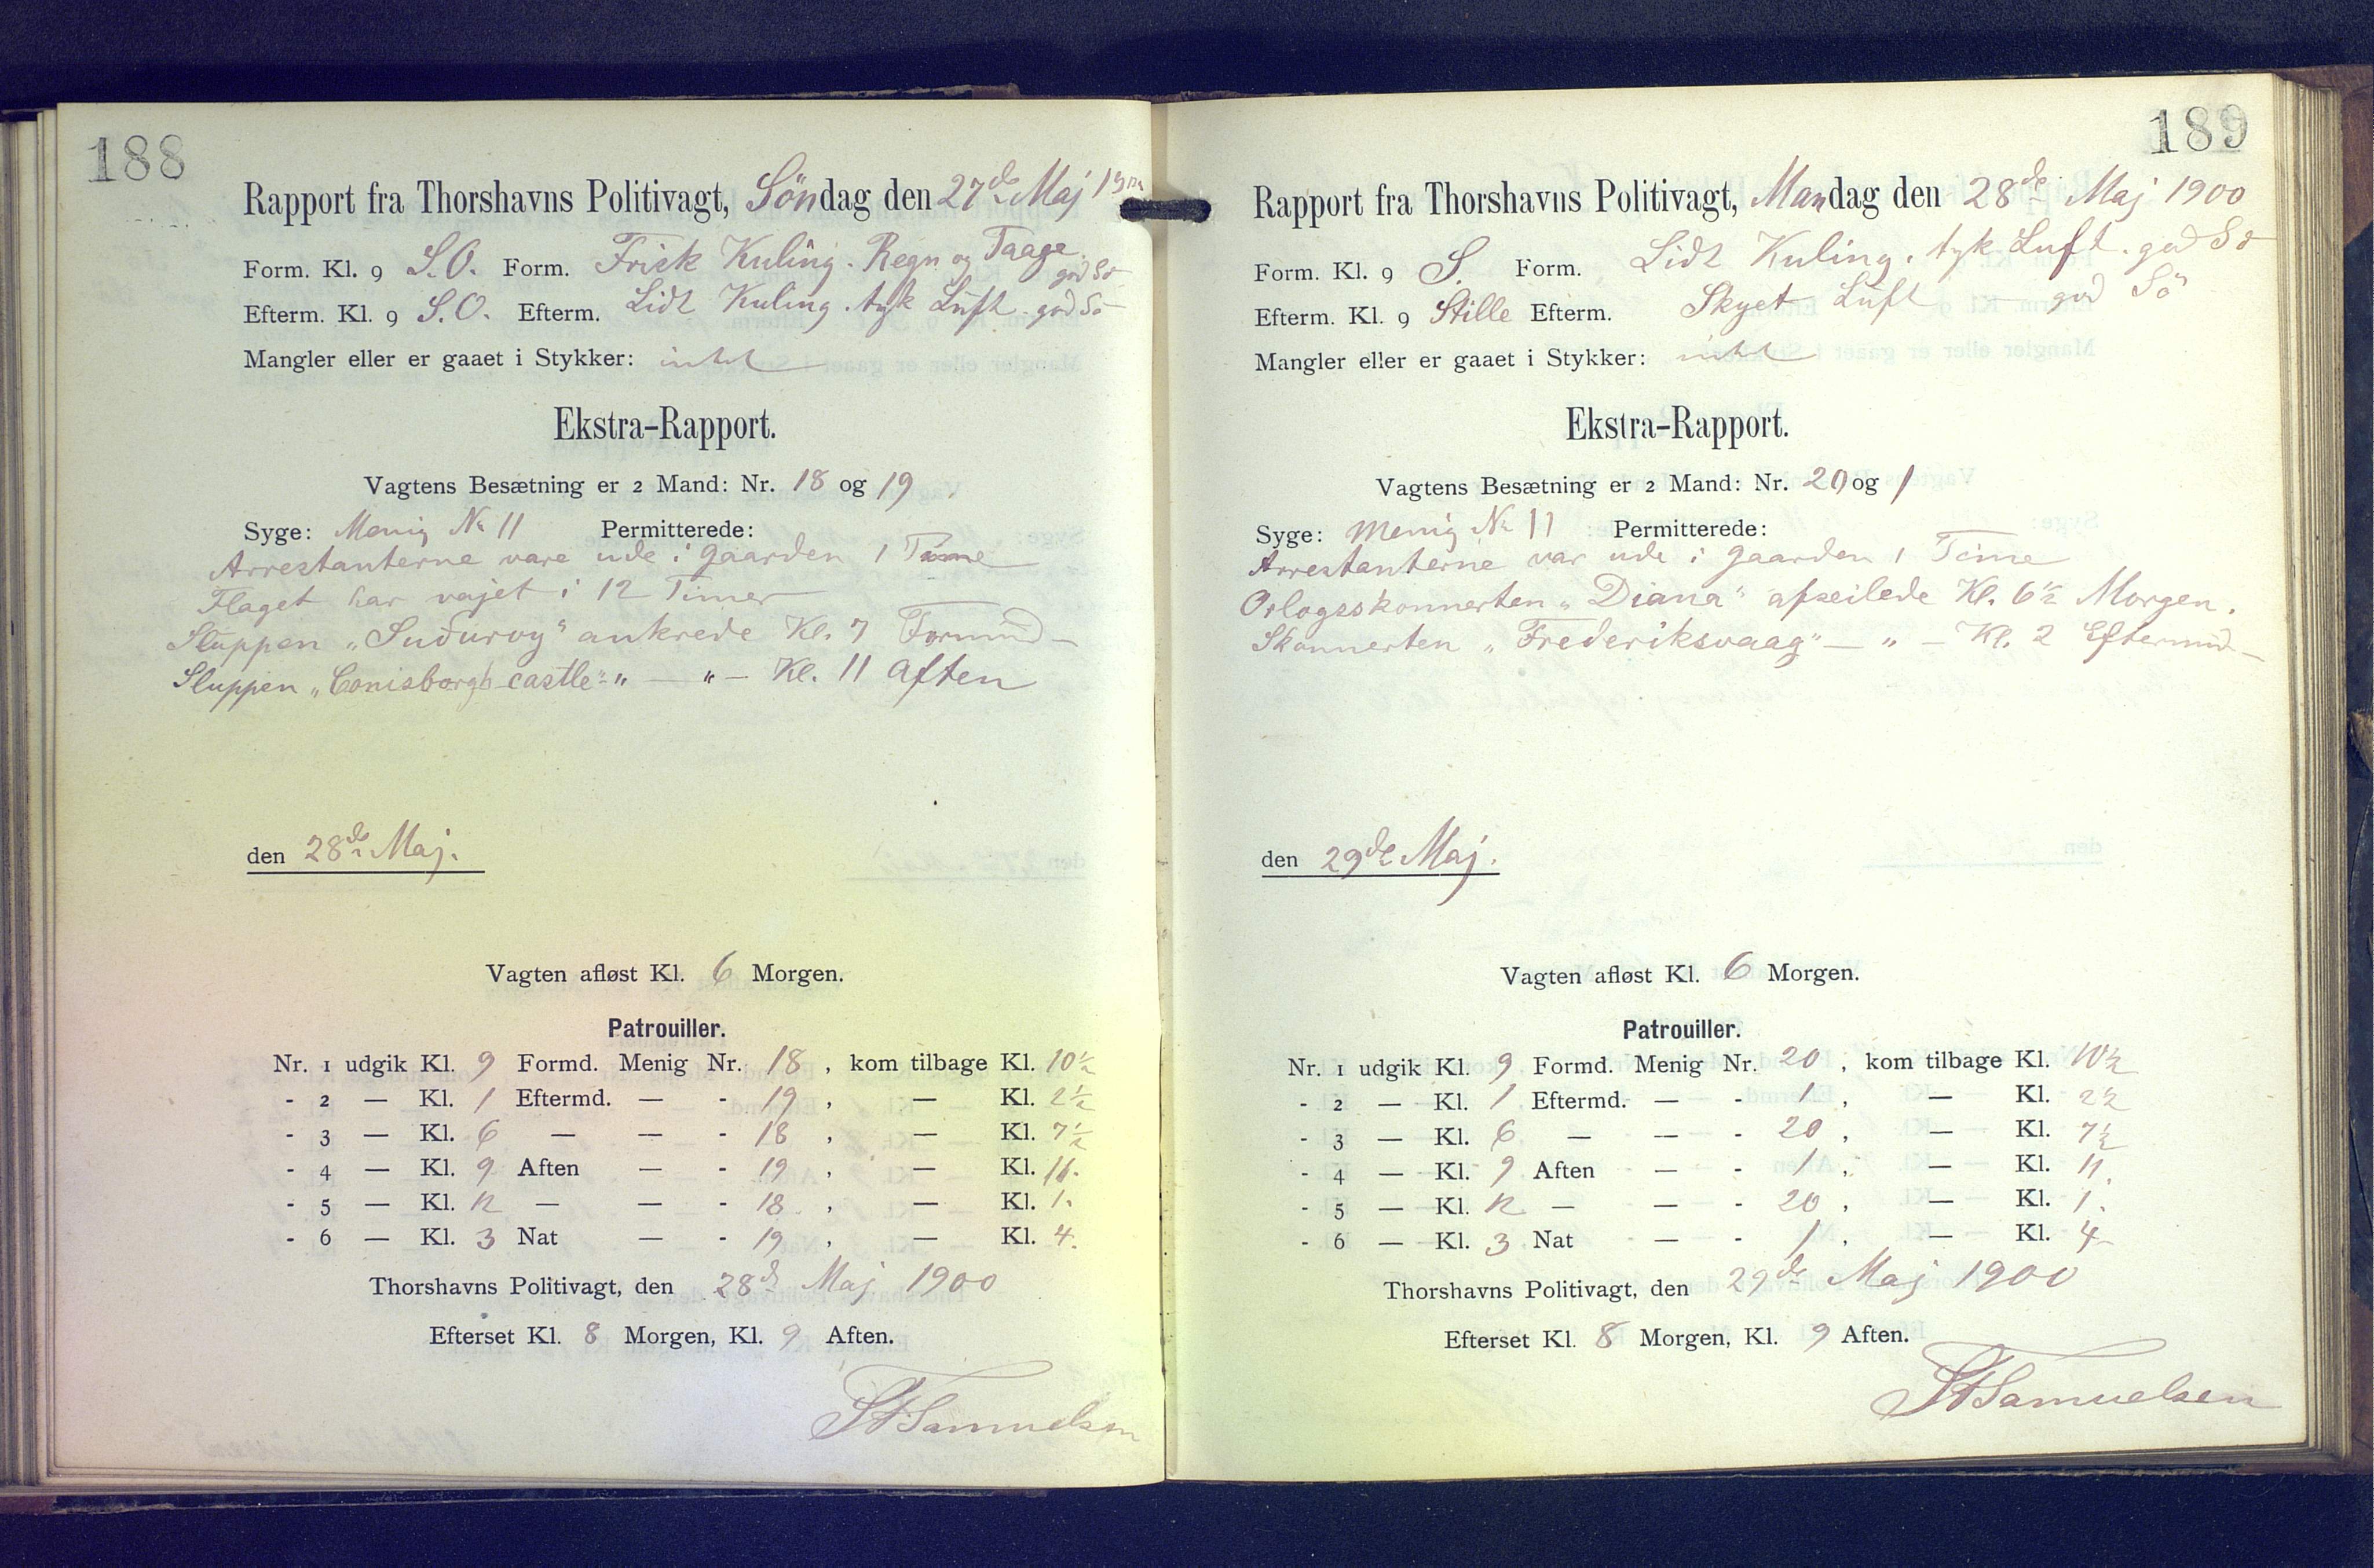 188
Rapport fra Thorshavns Politivagt, Söndag den 27de Maj
Form. Kl. 9 S.O. Form. Frisk Kuling. Regn og Taage. god Sö
Efterm. Kl. 9 S.O. Efterm. Lidt Kuling. tyk Luft. god Sö
Mangler eller er gaaet i Stykker: intet
Ekstra-Rapport.
Vagtens Besætning er 2 Mand: Nr. 18 og 19
Syge: Menig Nr 11 Permitterede:
Arrestanterne vare ude i Gaarden 1 Time
Flaget har vajet i 12 Timer
Sluppen „Suduroy" ankrede Kl. 7 Formid
Sluppen „Conisborgh castle" „ — „ — Kl. 11 Aften
den 28de Maj.
Vagten afløst Kl. 6 Morgen.
Patrouiller.
Nr. 1 udgik Kl. 9 Formd. Menig Nr. 18, kom tilbage Kl. 10½
- 2 — Kl. 1 Eftermd. — - 19, — Kl. 2½
- 3 — Kl. 6 — — - 18, — Kl. 7½
- 4 — Kl. 9 Aften — - 19, — Kl. 11.
- 5 — Kl. 12 — — - 18, — Kl. 1.
- 6 — Kl. 3 Nat — - 19, — Kl. 4.
Thorshavns Politivagt, den 28de Maj 1900
Efterset Kl. 8 Morgen, Kl. 9 Aften.
Samuelsen
189
Rapport fra Thorshavns Politivagt, Mandag den 28de Maj 1900
Form. Kl. 9 S. Form. Lidt Kuling. tyk Luft. god Sö
Efterm. Kl. 9 Stille Efterm. Skyet Luft — god Sö
Mangler eller er gaaet i Stykker: intet
Ekstra-Rapport.
Vagtens Besætning er 2 Mand: Nr. 20 og 1
Syge: Menig Nr 11 Permitterede:
Arrestanterne var ude i Gaarden 1 Time
Orlogsskonnerten „Diana" afseilede Kl. 6½ Morgen.
Skonnerten „Frederiksvaag" — „ — Kl. 2 Eftermid —
den 29de Maj.
Vagten afløst Kl. 6 Morgen.
Patrouiller.
Nr. 1 udgik Kl. 9 Formd. Menig Nr. 20, kom tilbage Kl. 10½
- 2 — Kl. 1 Eftermd. — - 1, — Kl. 2½
- 3 — Kl. 6 — — - 20, — Kl. 7½
- 4 — Kl. 9 Aften — - 1, — Kl. 11.
- 5 — Kl. 12 — — - 20, — Kl. 1.
- 6 — Kl. 3 Nat — - 1, — Kl. 4
Thorshavns Politivagt, den 29de Maj 1900
Efterset Kl. 8 Morgen, Kl. 9 Aften.
Samuelsen